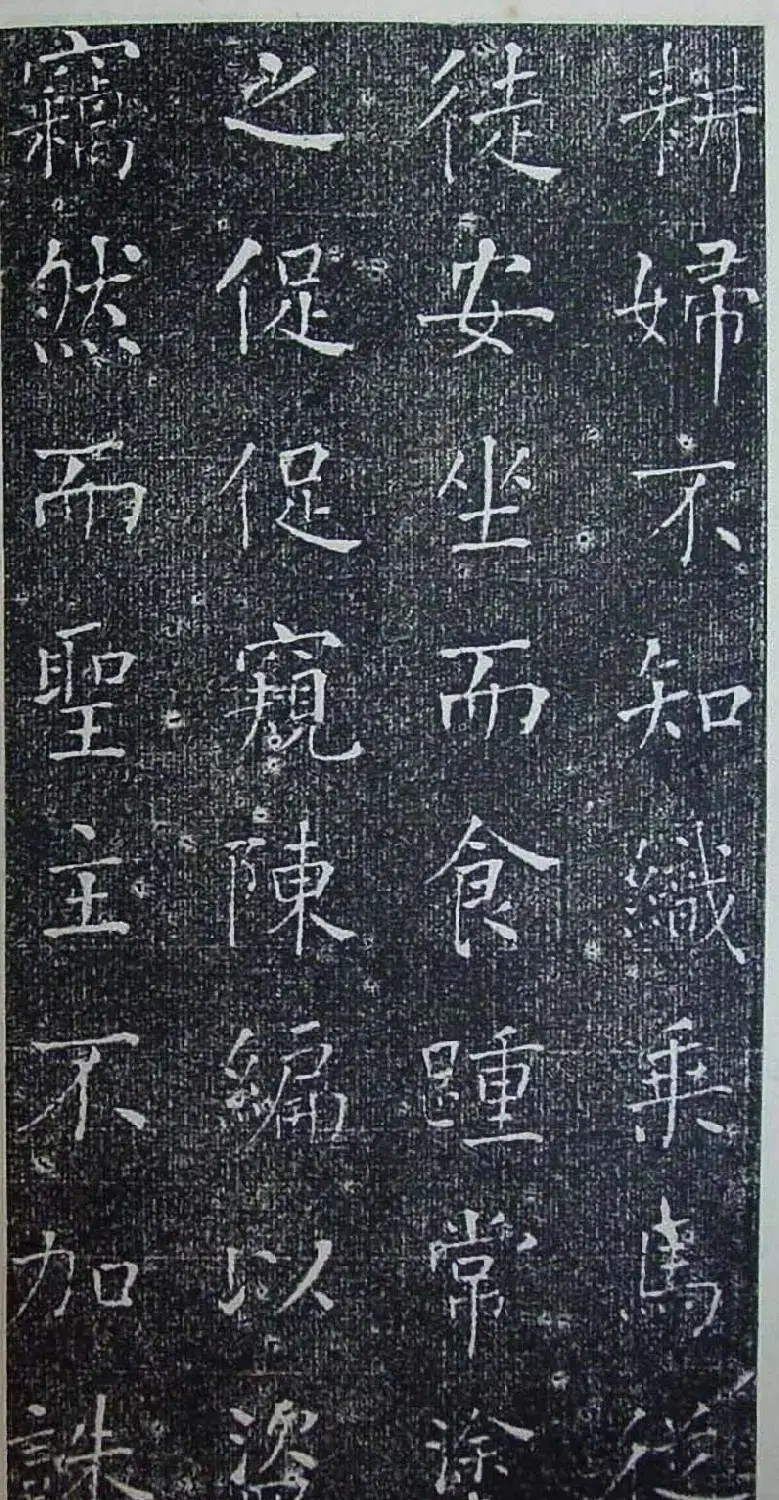 耕婦不知織乘馬從
徒安坐而食踵常塗
之促促窺陳編以盜
竊然而聖主不加誅